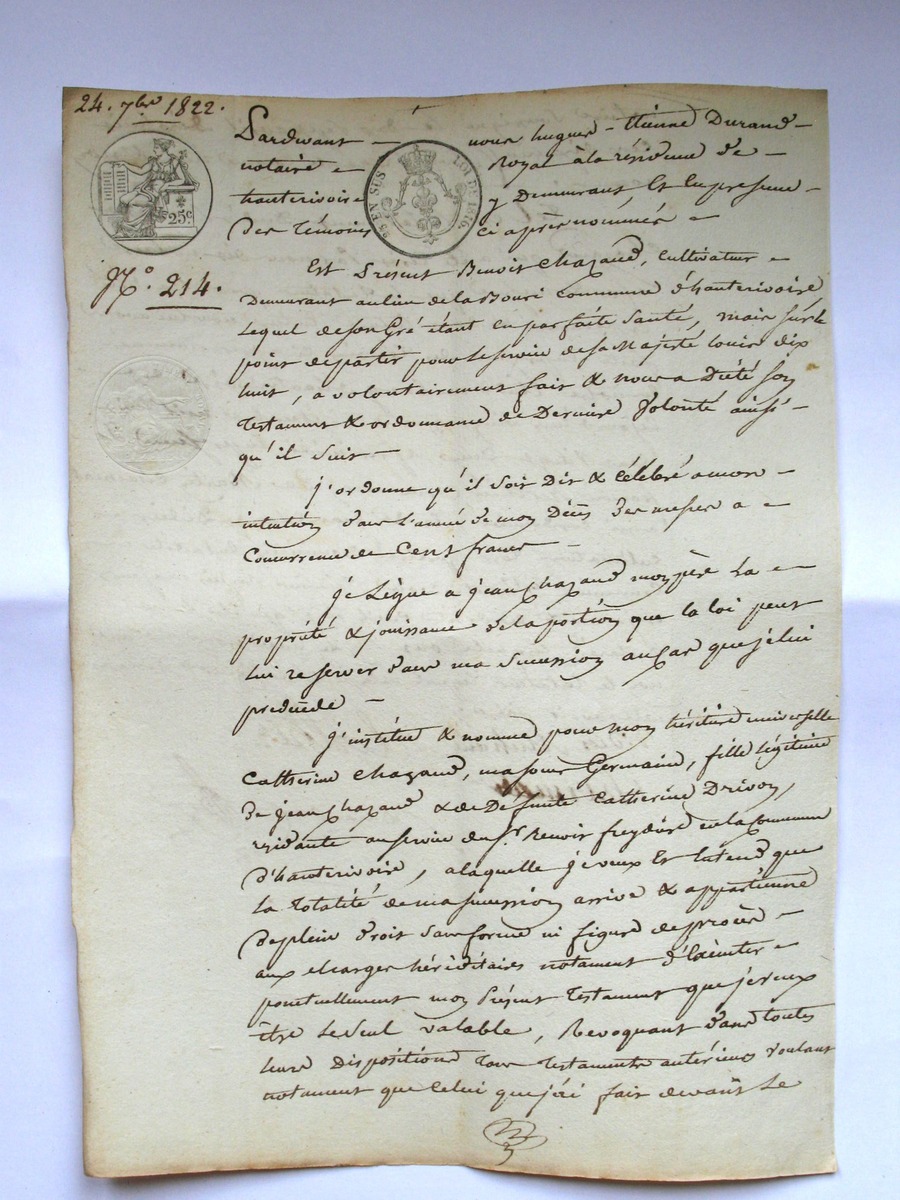 24. 7bre 1822.
Pardevant - nous hugues - Etienne Durand -
notaire - Royal à la résidence de -
hauterivoire y Demeurant, Et En presence -
Des Témoins ci après nommés -
25 EN SUS
LOI DE 1816.
25c
N.o 214.
Est Présent Benoit Chazaud, Cultivateur -
Demeurant au lieu de la Bouri commune d'hauterivoire
Lequel de son Gré étant En parfaite Santé, mais Sur le
point de partir pour le service de sa Majesté Louis dix
huit, a volontairement fait & nous a Dicté Son
Testament & ordonnance de Derniere Volonté ainsi -
qu'il Suit -
j'ordonne qu'il soit Dit & Célébré a mon -
intention dans L'année de mon Décès Des messes a -
Concurrence de Cent francs -
je Lègue a jean Chazaud mon père La -
propriété & jouissance de la portion que la loi peut
lui reserver dans ma Succession au cas que je lui
prédécède -
j'institue & nomme pour mon héritière universelle
Catherine Chazaud, ma sœur Germaine, fille Légitime
De jean Chazaud & de Defunte Catherine Drivon,
résidante au service du Sr. Benoit en la Commune
D'hauterivoire, a laquelle je veux Et Entend que
La Totalité de ma succession arrive & appartienne
De plein droit Sans forme ni figure de procès -
aux charges héréditaires notament D'Exécuter -
ponctuellement mon Présent Testament que je veux
être le seul valable, Revoquant dans toutes
leurs Dispositions Tous Testaments antérieurs Voulant
notament que Celui que j'ai fait devant Le